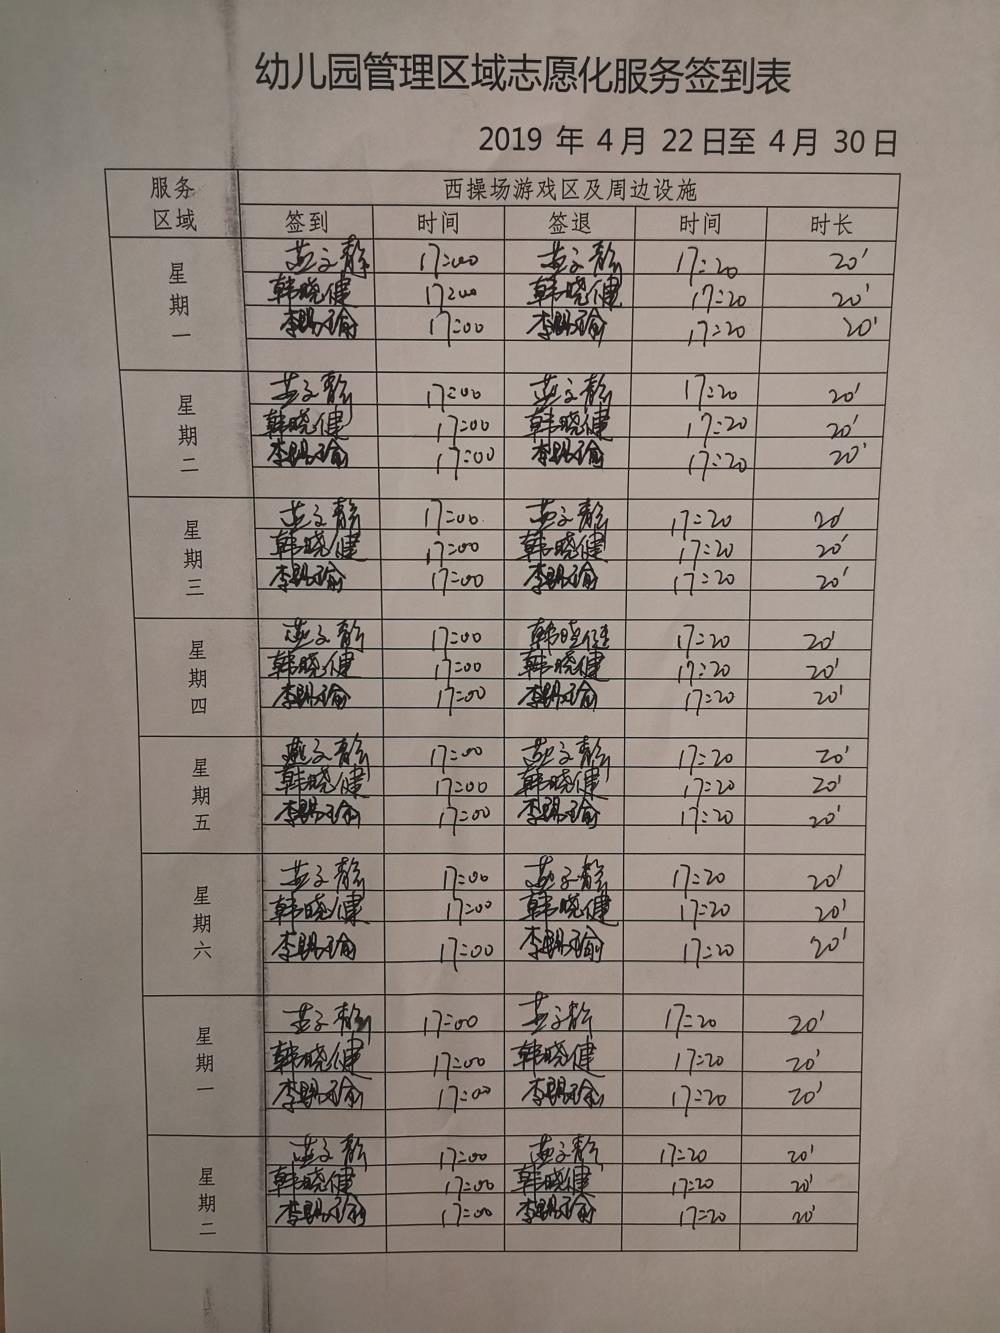 幼儿园管理区域志愿化服务签到表
2019 年 4 月 22 日至 4 月 30 日
服务区域 西操场游戏区及周边设施
签到 时间 签退 时间 时长
星期一
燕文静 17:00 燕文静 17:20 20'
韩晓健 17:00 韩晓健 17:20 20'
李赐瑜 17:00 李赐瑜 17:20 20'
星期二
燕文静 17:00 燕文静 17:20 20'
韩晓健 17:00 韩晓健 17:20 20'
李赐瑜 17:00 李赐瑜 17:20 20'
星期三
燕文静 17:00 燕文静 17:20 20'
韩晓健 17:00 韩晓健 17:20 20'
李赐瑜 17:00 李赐瑜 17:20 20'
星期四
燕文静 17:00 韩晓健 17:20 20'
韩晓健 17:00 韩晓健 17:20 20'
李赐瑜 17:00 李赐瑜 17:20 20'
星期五
燕文静 17:00 燕文静 17:20 20'
韩晓健 17:00 韩晓健 17:20 20'
李赐瑜 17:00 李赐瑜 17:20 20'
星期六
燕文静 17:00 燕文静 17:20 20'
韩晓健 17:00 韩晓健 17:20 20'
李赐瑜 17:00 李赐瑜 17:20 20'
星期一
燕文静 17:00 燕文静 17:20 20'
韩晓健 17:00 韩晓健 17:20 20'
李赐瑜 17:00 李赐瑜 17:20 20'
星期二
燕文静 17:00 燕文静 17:20 20'
韩晓健 17:00 韩晓健 17:20 20'
李赐瑜 17:00 李赐瑜 17:20 20'